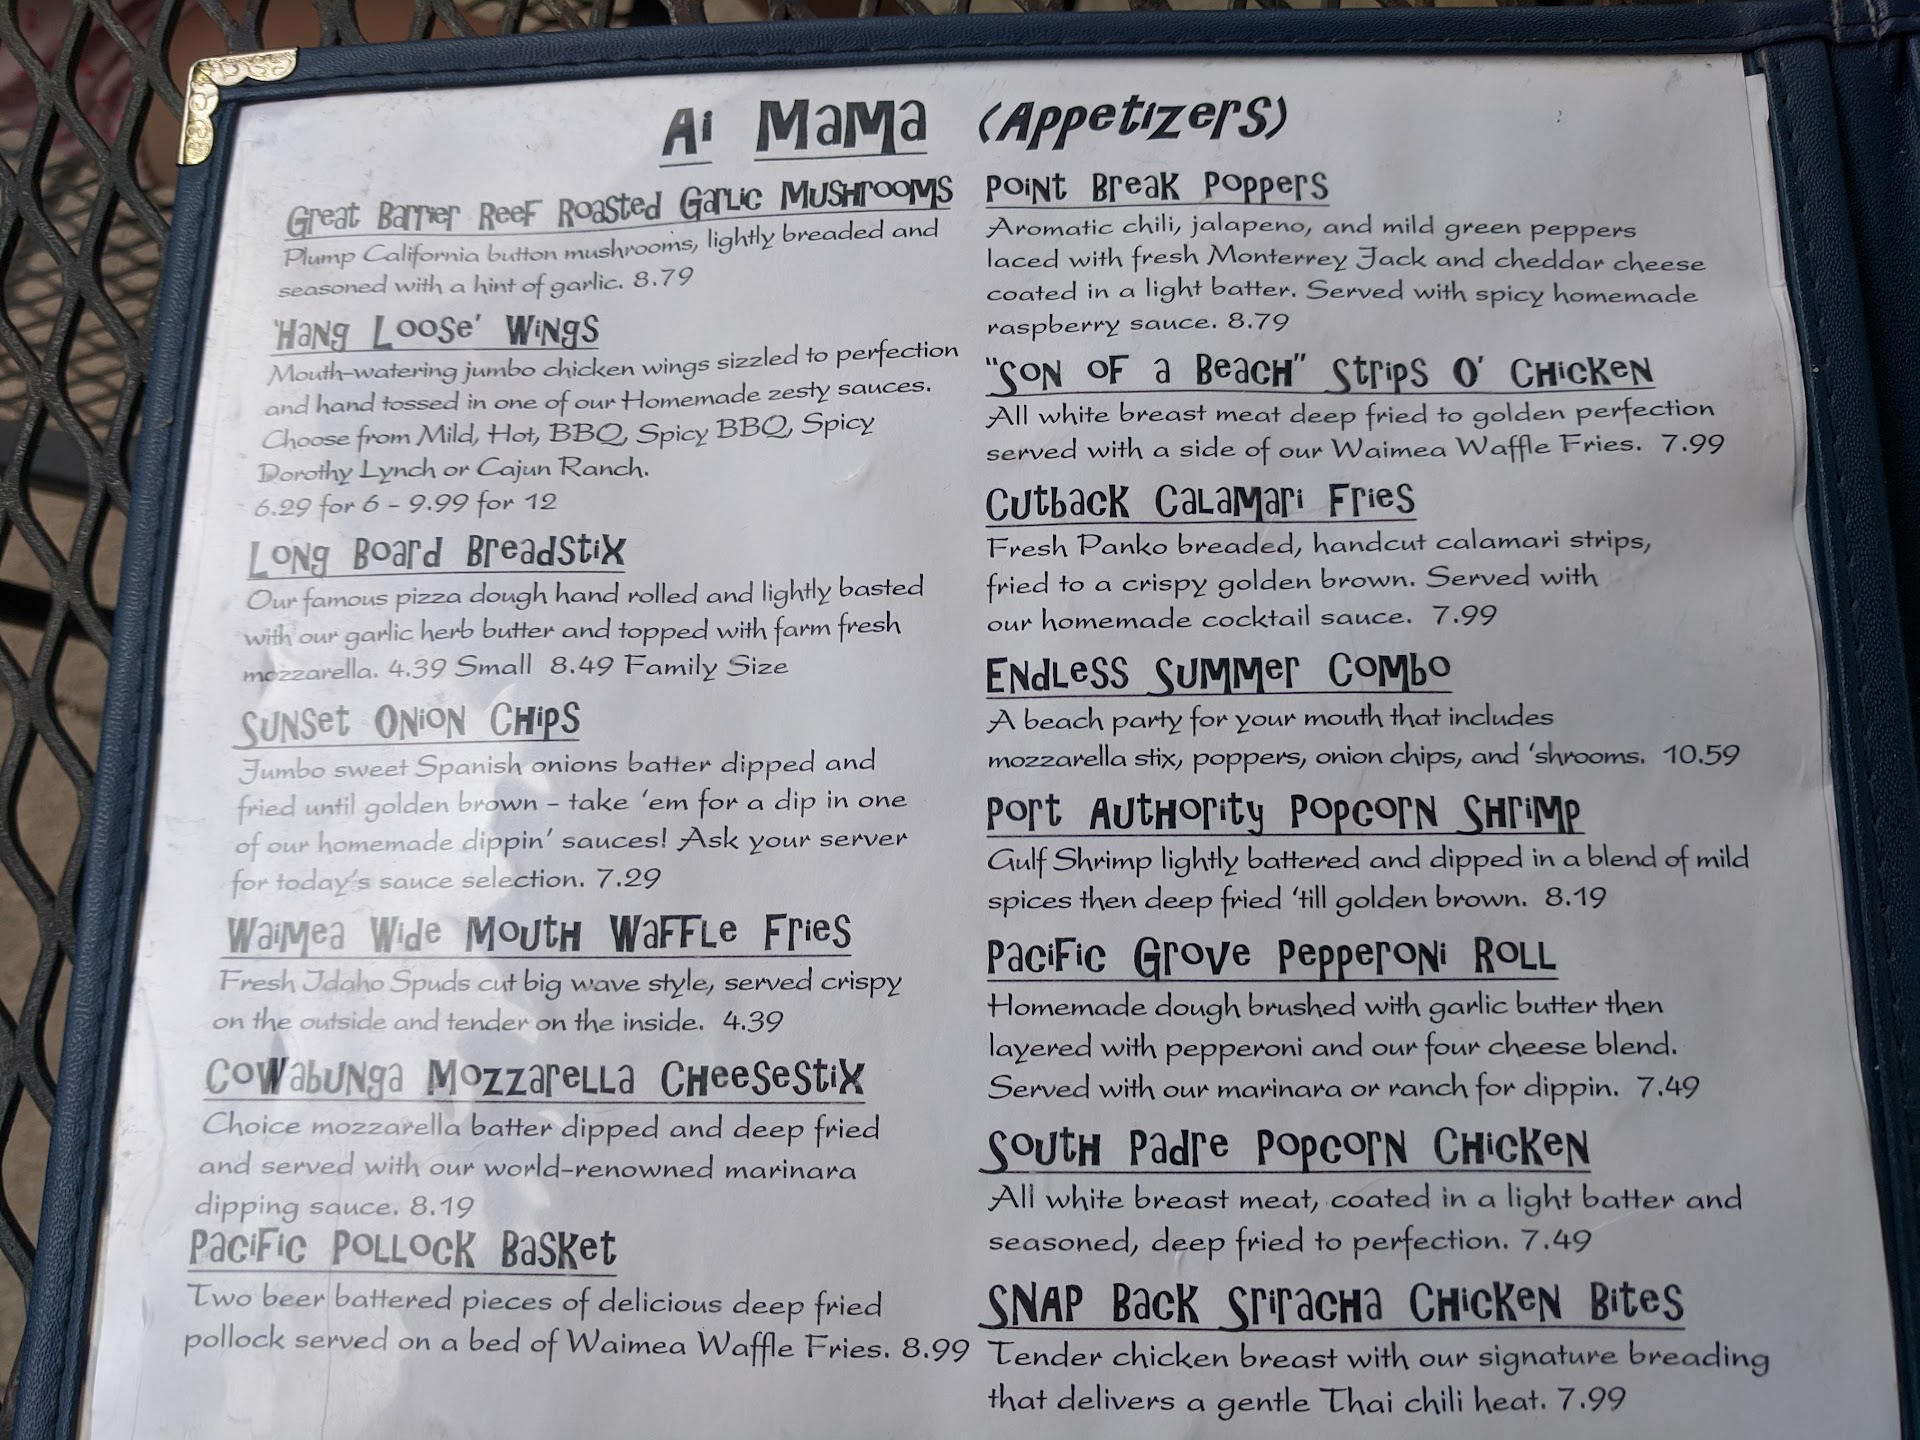 Ai Mama (Appetizers)
Great Barrier Reef Roasted Garlic Mushrooms
Plump California button mushrooms, lightly breaded and
seasoned with a hint of garlic. 8.79
'Hang Loose' Wings
Mouth-watering jumbo chicken wings sizzled to perfection
and hand tossed in one of our Homemade zesty sauces.
Choose from Mild, Hot, BBQ, Spicy BBQ, Spicy
Dorothy Lynch or Cajun Ranch.
6.29 for 6 - 9.99 for 12
Long Board Breadstix
Our famous pizza dough hand rolled and lightly basted
with our garlic herb butter and topped with farm fresh
mozzarella. 4.39 Small 8.49 Family Size
Sunset Onion Chips
Jumbo sweet Spanish onions batter dipped and
fried until golden brown - take 'em for a dip in one
of our homemade dippin' sauces! Ask your server
for today's sauce selection. 7.29
Waimea Wide Mouth Waffle Fries
Fresh Idaho Spuds cut big wave style, served crispy
on the outside and tender on the inside. 4.39
Cowabunga Mozzarella Cheesestix
Choice mozzarella batter dipped and deep fried
and served with our world-renowned marinara
dipping sauce. 8.19
Pacific Pollock Basket
Two beer battered pieces of delicious deep fried
pollock served on a bed of Waimea Waffle Fries. 8.99
Point Break Poppers
Aromatic chili, jalapeno, and mild green peppers
laced with fresh Monterrey Jack and cheddar cheese
coated in a light batter. Served with spicy homemade
raspberry sauce. 8.79
"Son of a Beach" Strips O' Chicken
All white breast meat deep fried to golden perfection
served with a side of our Waimea Waffle Fries. 7.99
Cutback Calamari Fries
Fresh Panko breaded, handcut calamari strips,
fried to a crispy golden brown. Served with
our homemade cocktail sauce. 7.99
Endless Summer Combo
A beach party for your mouth that includes
mozzarella stix, poppers, onion chips, and 'shrooms. 10.59
Port Authority Popcorn Shrimp
Gulf Shrimp lightly battered and dipped in a blend of mild
spices then deep fried 'till golden brown. 8.19
Pacific Grove Pepperoni Roll
Homemade dough brushed with garlic butter then
layered with pepperoni and our four cheese blend.
Served with our marinara or ranch for dippin. 7.49
South Padre Popcorn Chicken
All white breast meat, coated in a light batter and
seasoned, deep fried to perfection. 7.49
Snap Back Sriracha Chicken Bites
Tender chicken breast with our signature breading
that delivers a gentle Thai chili heat. 7.99